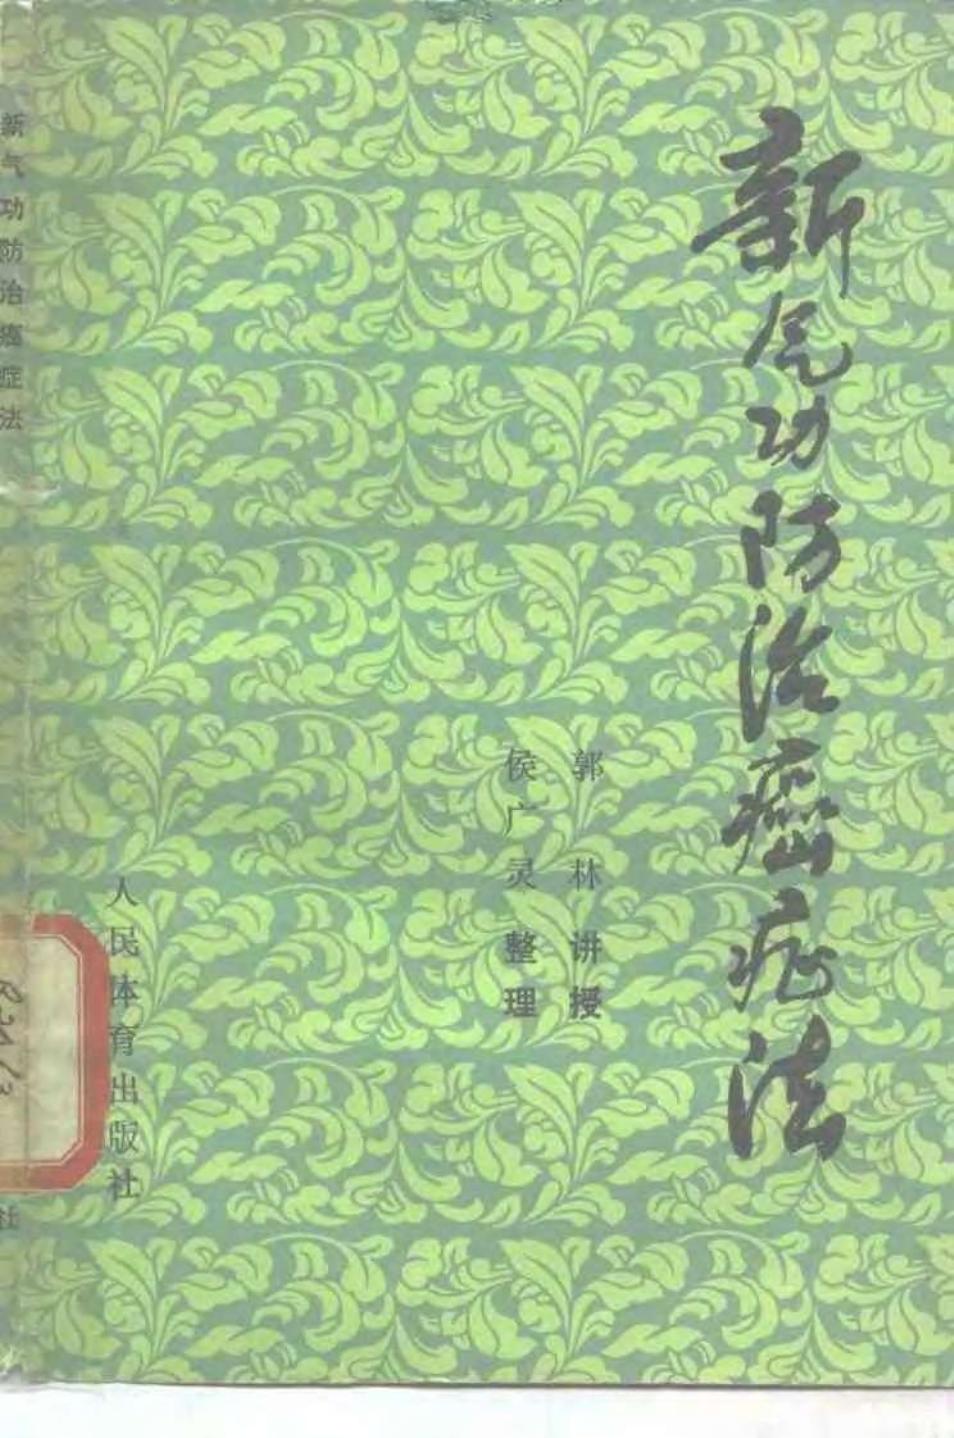 新气功防治癌症法
郭林讲授
侯广灵整理
人民体育出版社
新气功防治癌症法
社